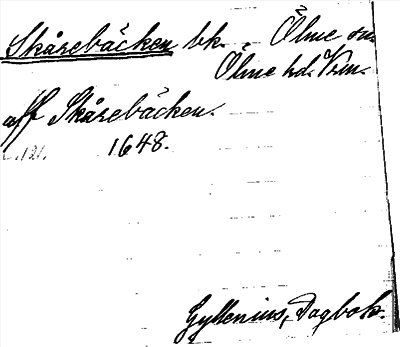 Skårebäcken bk. Ölme sn
Ölme hd. Vrm.
aff Skårebäcken.
121. 1648.
Gyllenius, Dagbok.